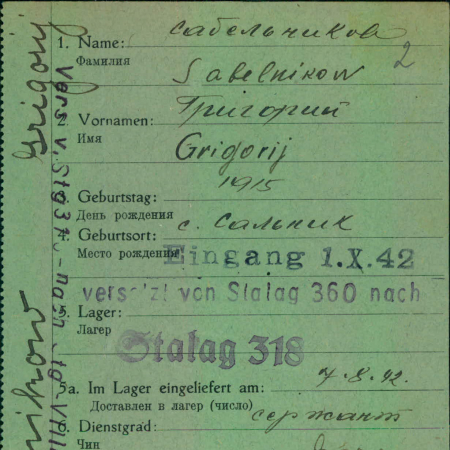 1. Name: Сабельников
Фамилия
Sabelnikow
2
2. Vornamen: Григорий
Имя
Grigorij
3. Geburtstag: 1915
День рождения
4. Geburtsort: с. Сальник
Место рождения
Eingang 1.X.42
versetzt von Stalag 360 nach
5. Lager:
Лагер
Stalag 318
5a. Im Lager eingeliefert am: 7.8.42.
Доставлен в лагер (число)
6. Dienstgrad: сержант
Чин
Grigorij
Vers. v. Stg 37 - nach Stg. VIII
nikow